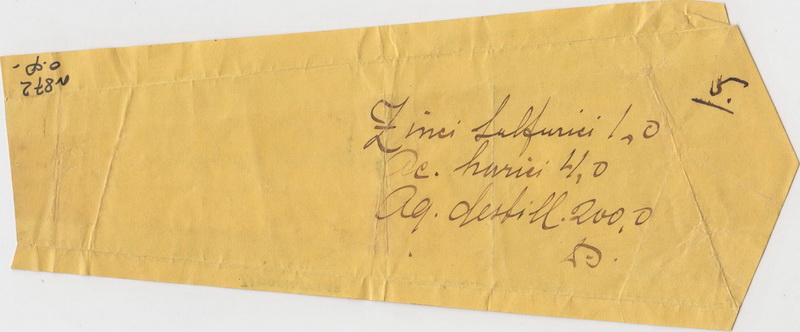 Zinci sulfurici 1,0
Ac. burici 4,0
Aq. destill. 200,0
D.
1.5
n872